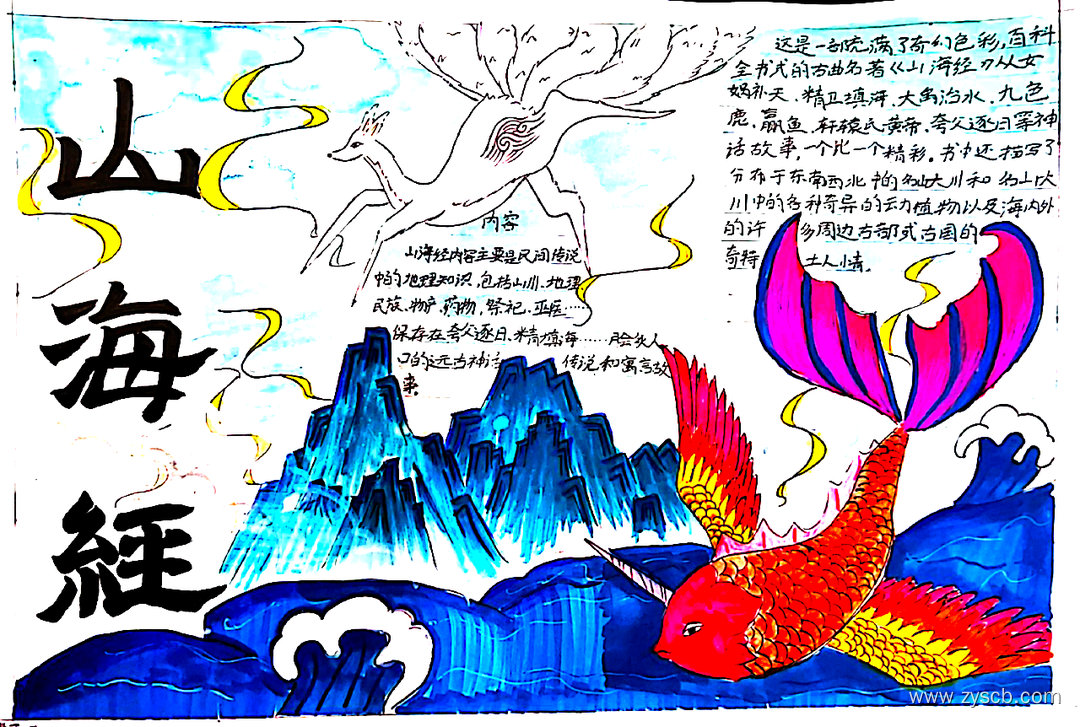 山
海
经
这是一部充满了奇幻色彩,百科
全书式的古曲名著《山海经》从女
娲补天、精卫填海、大禹治水、九色
鹿、嬴鱼、轩辕氏黄帝、夸父逐日等神
话故事,一个比一个精彩。书中还描写了
分布于东南西北中的名山大川和名山大
川中的各种奇异的动植物以及海内外
的许多周边古部式古国的
奇特土人小情。
内容
山海经内容主要是民间传说
中的地理知识,包括山川、地理、
民族、物产、药物、祭祀、巫医……
保存在夸父逐日、精填海……脍炙人
口的远古神话传说和寓言故
事。
www.zyscb.com